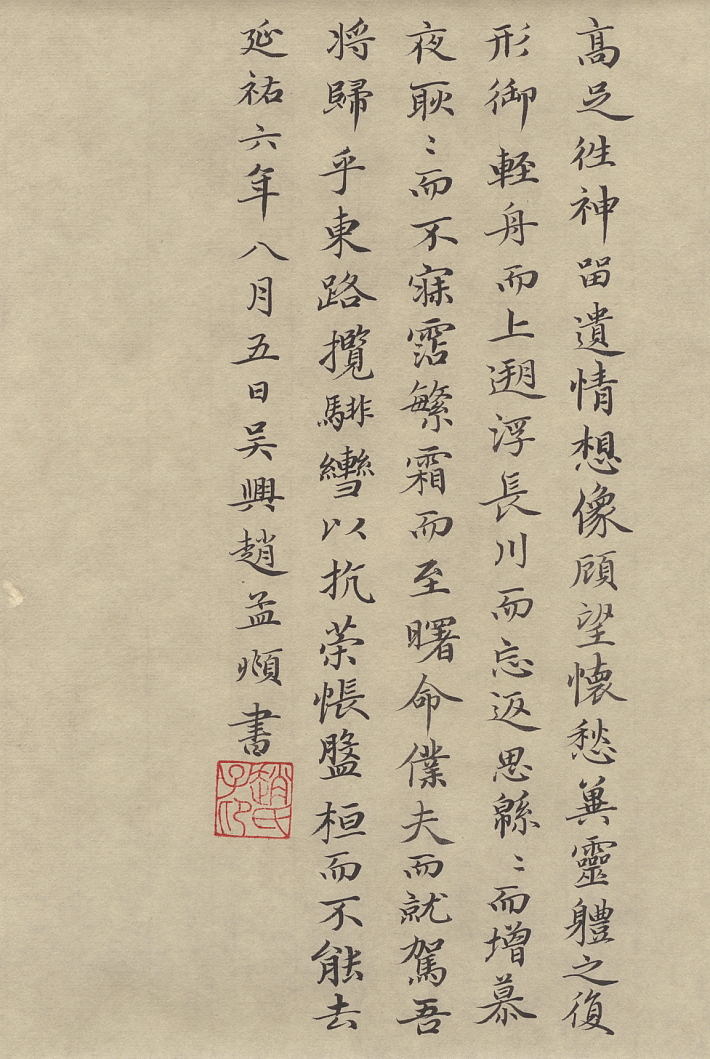 髙足徃神畱遺情想像顧望懷愁兾靈軆之復
形御輕舟而上遡浮長川而忘返思緜〻而增慕
夜耿〻而不寐霑繁霜而至曙命僕夫而就駕吾
将歸乎東路攬騑轡以抗榮悵盤桓而不能去
延祐六年八月五日吴興趙孟頫書
趙氏子印